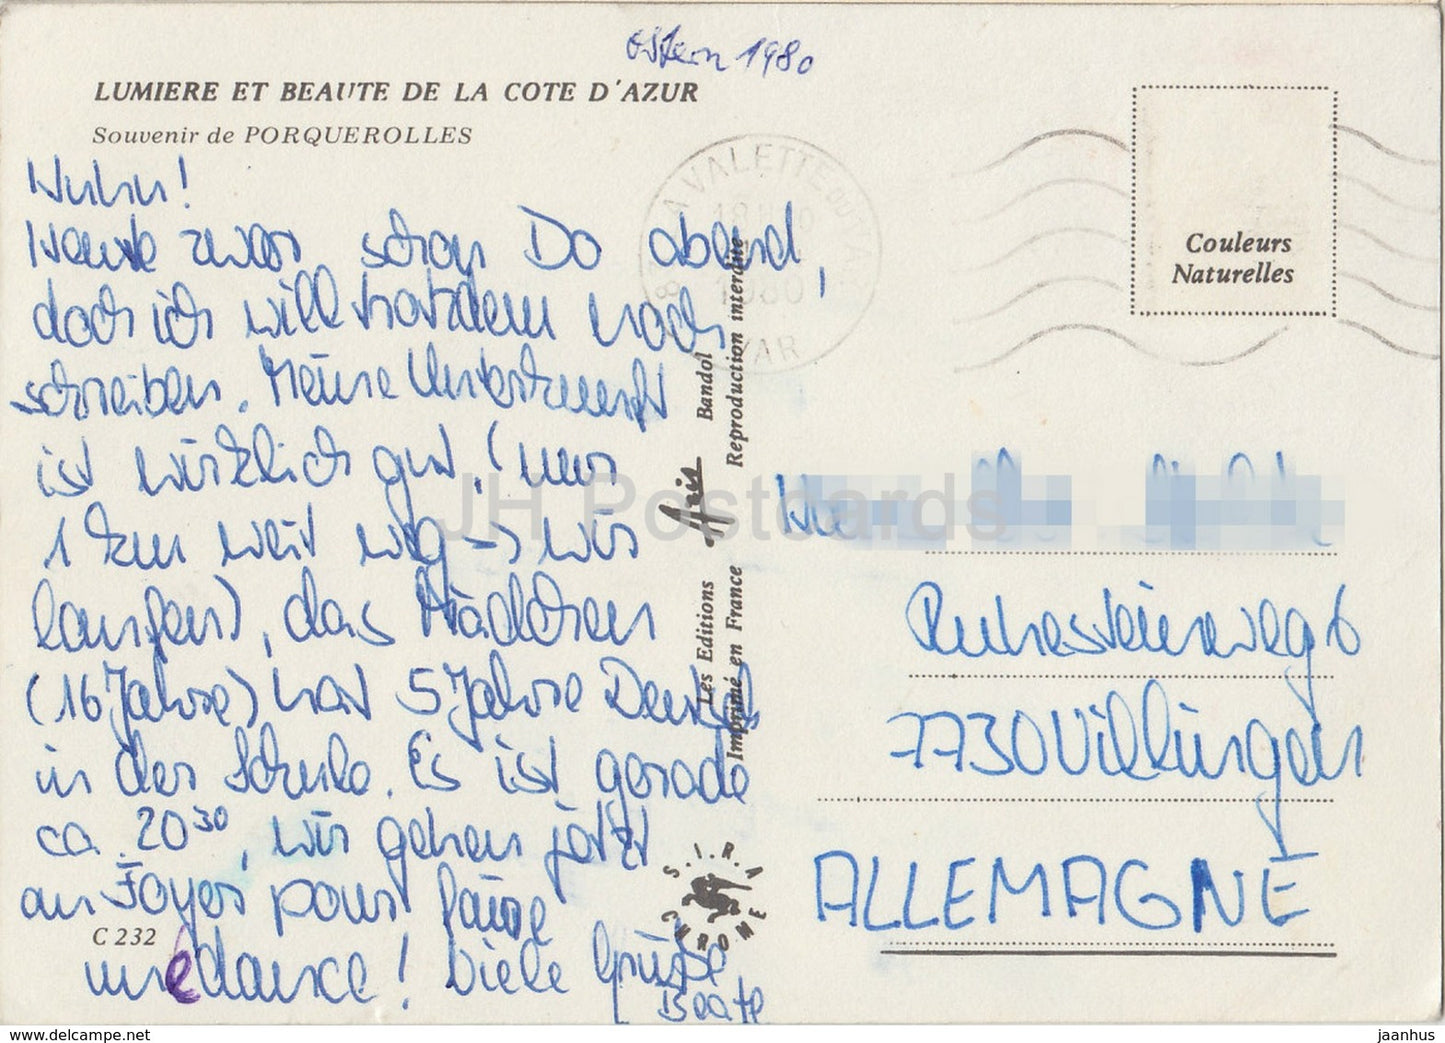 Ostern 1980
LUMIERE ET BEAUTE DE LA COTE D'AZUR
Souvenir de PORQUEROLLES
Huhu!
Heute zwar schon Do abend,
doch ich will trotzdem noch
schreiben. Meine Unterkunft
ist wirklich gut, (nur
1 km weit weg → wir
laufen), das Mädchen
(16 Jahre) hat 5 Jahre Deutsch
in der Schule. Es ist gerade
ca. 20³⁰, wir gehen jetzt
au Foyer pour faire
une dance! Viele Grüsse
Beate
C 232
LA VALETTE DU VAR
1980
VAR
Les Editions Aris Bandol
Imprimé en France Reproduction interdite
S.I.R.A. CHROME
Couleurs
Naturelles
Ruhesteinweg 6
7730 Villingen
ALLEMAGNE
JH Postcards
www.delcampe.net
jaanhus